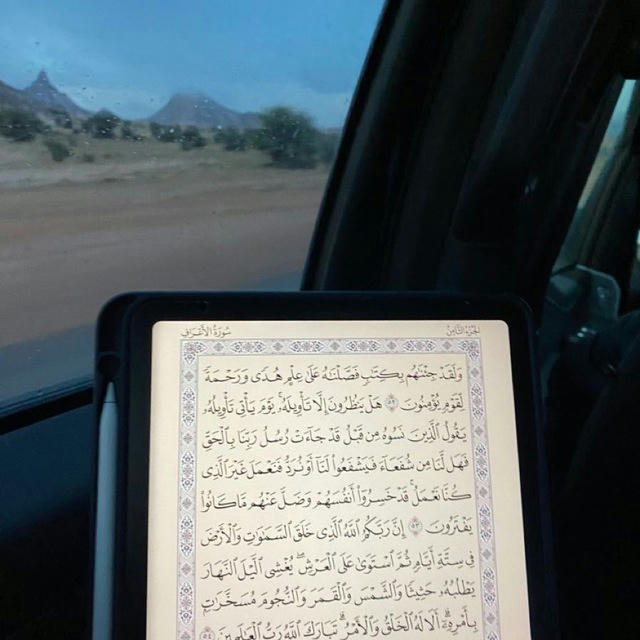 الجزء الثامن
سورة الأعراف
وَلَقَدْ جِئْنَٰهُم بِكِتَٰبٍ فَصَّلْنَٰهُ عَلَىٰ عِلْمٍ هُدًى وَرَحْمَةً
لِّقَوْمٍ يُؤْمِنُونَ ٥٢ هَلْ يَنظُرُونَ إِلَّا تَأْوِيلَهُۥ يَوْمَ يَأْتِى تَأْوِيلُهُۥ
يَقُولُ ٱلَّذِينَ نَسُوهُ مِن قَبْلُ قَدْ جَآءَتْ رُسُلُ رَبِّنَا بِٱلْحَقِّ
فَهَل لَّنَا مِن شُفَعَآءَ فَيَشْفَعُوا۟ لَنَآ أَوْ نُرَدُّ فَنَعْمَلَ غَيْرَ ٱلَّذِى
كُنَّا نَعْمَلُ قَدْ خَسِرُوٓا۟ أَنفُسَهُمْ وَضَلَّ عَنْهُم مَّا كَانُوا۟
يَفْتَرُونَ ٥٣ إِنَّ رَبَّكُمُ ٱللَّهُ ٱلَّذِى خَلَقَ ٱلسَّمَٰوَٰتِ وَٱلْأَرْضَ
فِى سِتَّةِ أَيَّامٍ ثُمَّ ٱسْتَوَىٰ عَلَى ٱلْعَرْشِ يُغْشِى ٱلَّيْلَ ٱلنَّهَارَ
يَطْلُبُهُۥ حَثِيثًا وَٱلشَّمْسَ وَٱلْقَمَرَ وَٱلنُّجُومَ مُسَخَّرَٰتٍۭ
بِأَمْرِهِۦٓ أَلَا لَهُ ٱلْخَلْقُ وَٱلْأَمْرُ تَبَارَكَ ٱللَّهُ رَبُّ ٱلْعَٰلَمِينَ ٥٤